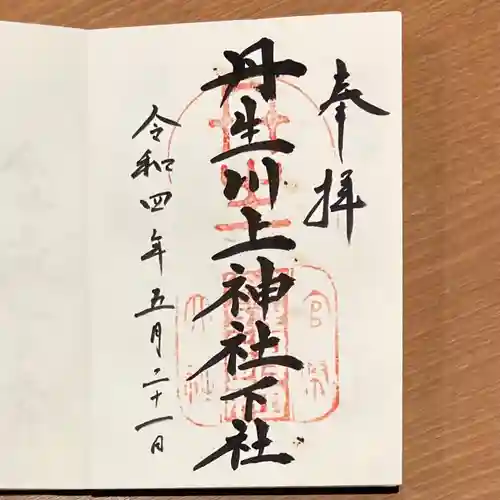 奉拝
丹生川上神社下社
令和四年五月二十一日